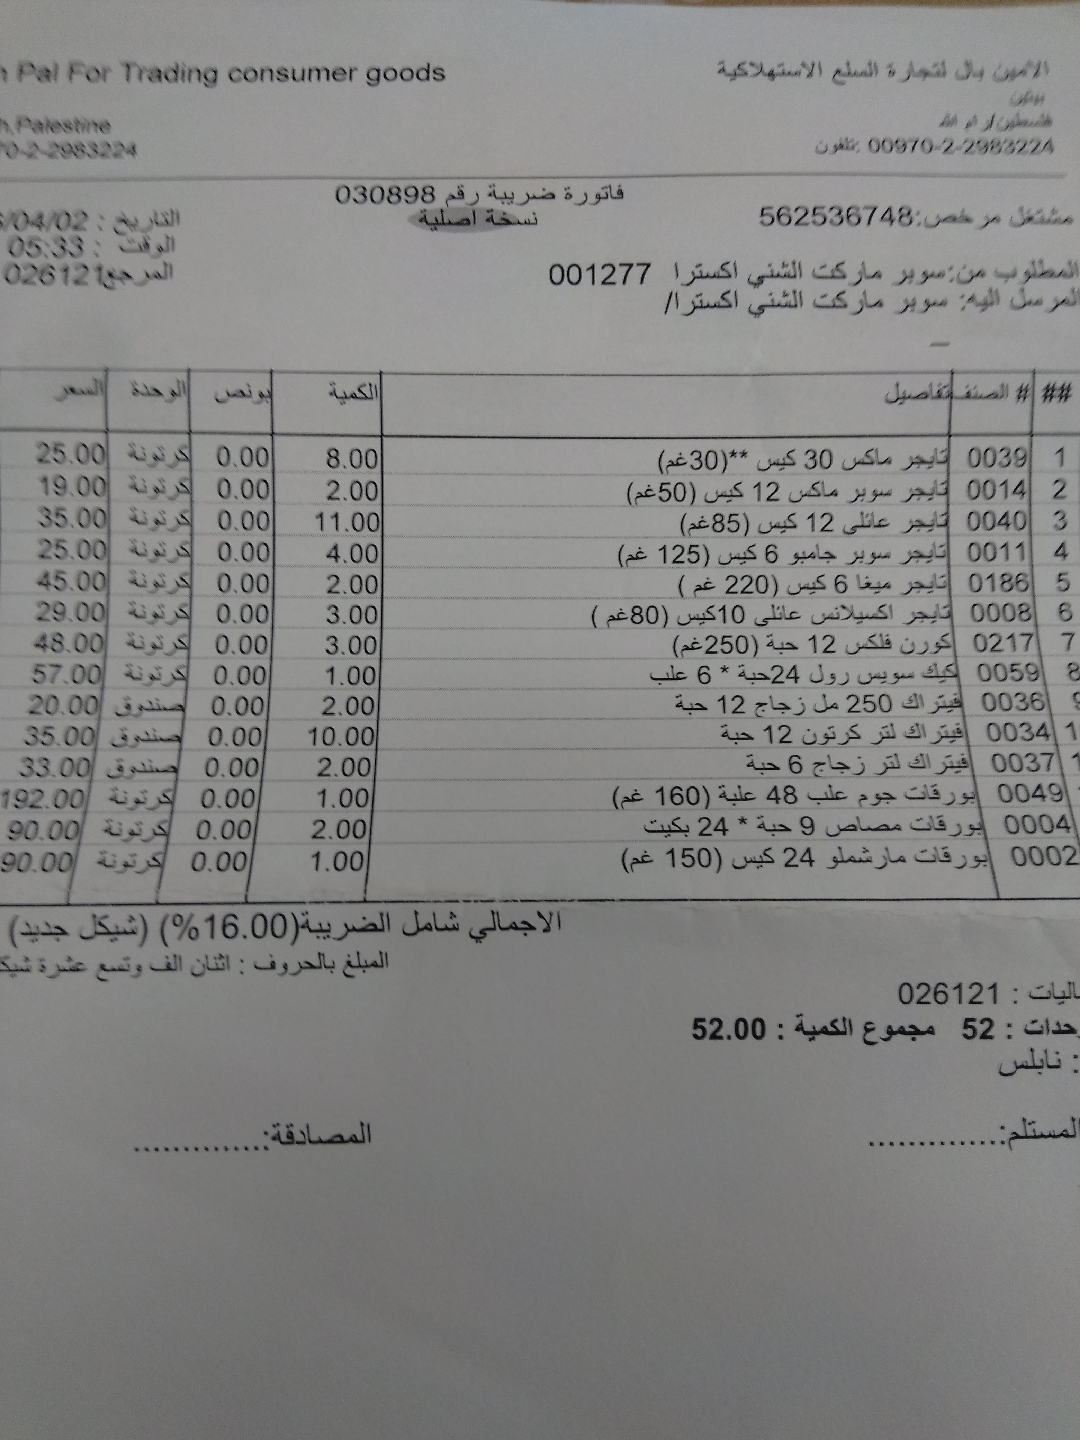 Pal For Trading consumer goods
الامين بال لتجارة السلع الاستهلاكية
Palestine
فلسطين/رام الله
70-2-2983224
تلفون: 00970-2-2983224
فاتورة ضريبة رقم 030898
نسخة اصلية
مشتغل مرخص:562536748
التاريخ : /04/02
الوقت : 05:33
المرجع026121
المطلوب من:سوبر ماركت الشني اكسترا 001277
المرسل اليه: سوبر ماركت الشني اكسترا/
## # الصنف تفاصيل الكمية بونص الوحدة السعر
1 0039 تايجر ماكس 30 كيس **(30غم) 8.00 0.00 كرتونة 25.00
2 0014 تايجر سوبر ماكس 12 كيس (50غم) 2.00 0.00 كرتونة 19.00
3 0040 تايجر عائلي 12 كيس (85غم) 11.00 0.00 كرتونة 35.00
4 0011 تايجر سوبر جامبو 6 كيس (125 غم) 4.00 0.00 كرتونة 25.00
5 0186 تايجر ميغا 6 كيس (220 غم ) 2.00 0.00 كرتونة 45.00
6 0008 تايجر اكسيلانس عائلي 10كيس (80غم ) 3.00 0.00 كرتونة 29.00
7 0217 كورن فلكس 12 حبة (250غم) 3.00 0.00 كرتونة 48.00
8 0059 كيك سويس رول 24حبة * 6 علب 1.00 0.00 كرتونة 57.00
9 0036 فيتراك 250 مل زجاج 12 حبة 2.00 0.00 صندوق 20.00
1 0034 فيتراك لتر كرتون 12 حبة 10.00 0.00 صندوق 35.00
1 0037 فيتراك لتر زجاج 6 حبة 2.00 0.00 صندوق 33.00
0049 بورقات جوم علب 48 علبة (160 غم) 1.00 0.00 كرتونة 192.00
0004 بورقات مصاص 9 حبة * 24 بكيت 2.00 0.00 كرتونة 90.00
0002 بورقات مارشملو 24 كيس (150 غم) 1.00 0.00 كرتونة 90.00
الاجمالي شامل الضريبة(16.00%) (شيكل جديد)
المبلغ بالحروف : اثنان الف وتسع عشرة شيك
اليات : 026121
حدات : 52 مجموع الكمية : 52.00
: نابلس
المستلم:..............
المصادقة:..............